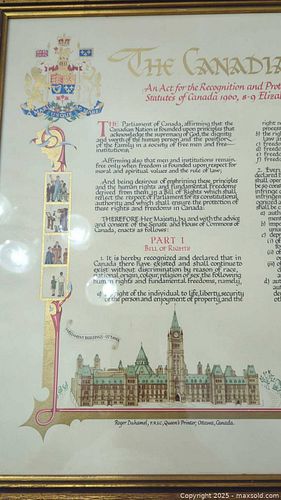 THE CANADIA
An Act for the Recognition and Prot
Statutes of Canada 1960, 8-9 Eliza
THE Parliament of Canada, affirming that the
Canadian Nation is founded upon principles that
acknowledge the supremacy of God, the dignity
and worth of the human person and the position
of the Family in a society of free men and free
institutions;
Affirming also that men and institutions remain
free only when freedom is founded upon respect for
moral and spiritual values and the rule of law;
And being desirous of enshrining these principles
and the human rights and fundamental freedoms
derived from them, in a Bill of Rights which shall
reflect the respect of Parliament for its constitutional
authority and which shall ensure the protection of
these rights and freedoms in Canada:
THEREFORE Her Majesty, by and with the advice
and consent of the Senate and House of Commons
of Canada, enacts as follows:
PART I
BILL OF RIGHTS
1. It is hereby recognized and declared that in
Canada there have existed and shall continue to
exist without discrimination by reason of race,
national origin, colour, religion or sex, the following
human rights and fundamental freedoms, namely,
right of the individual to life, liberty, security
of the person and enjoyment of property, and the
right n
process
b) the righ
law an
c) freedo
d) freedo
e) freedo
f) freedo
2. Every
declared
PARLIAMENT BUILDINGS - OTTAWA
Roger Duhamel, F.R.S.C., Queen's Printer, Ottawa, Canada.
Copyright 2025 - maxsold.com